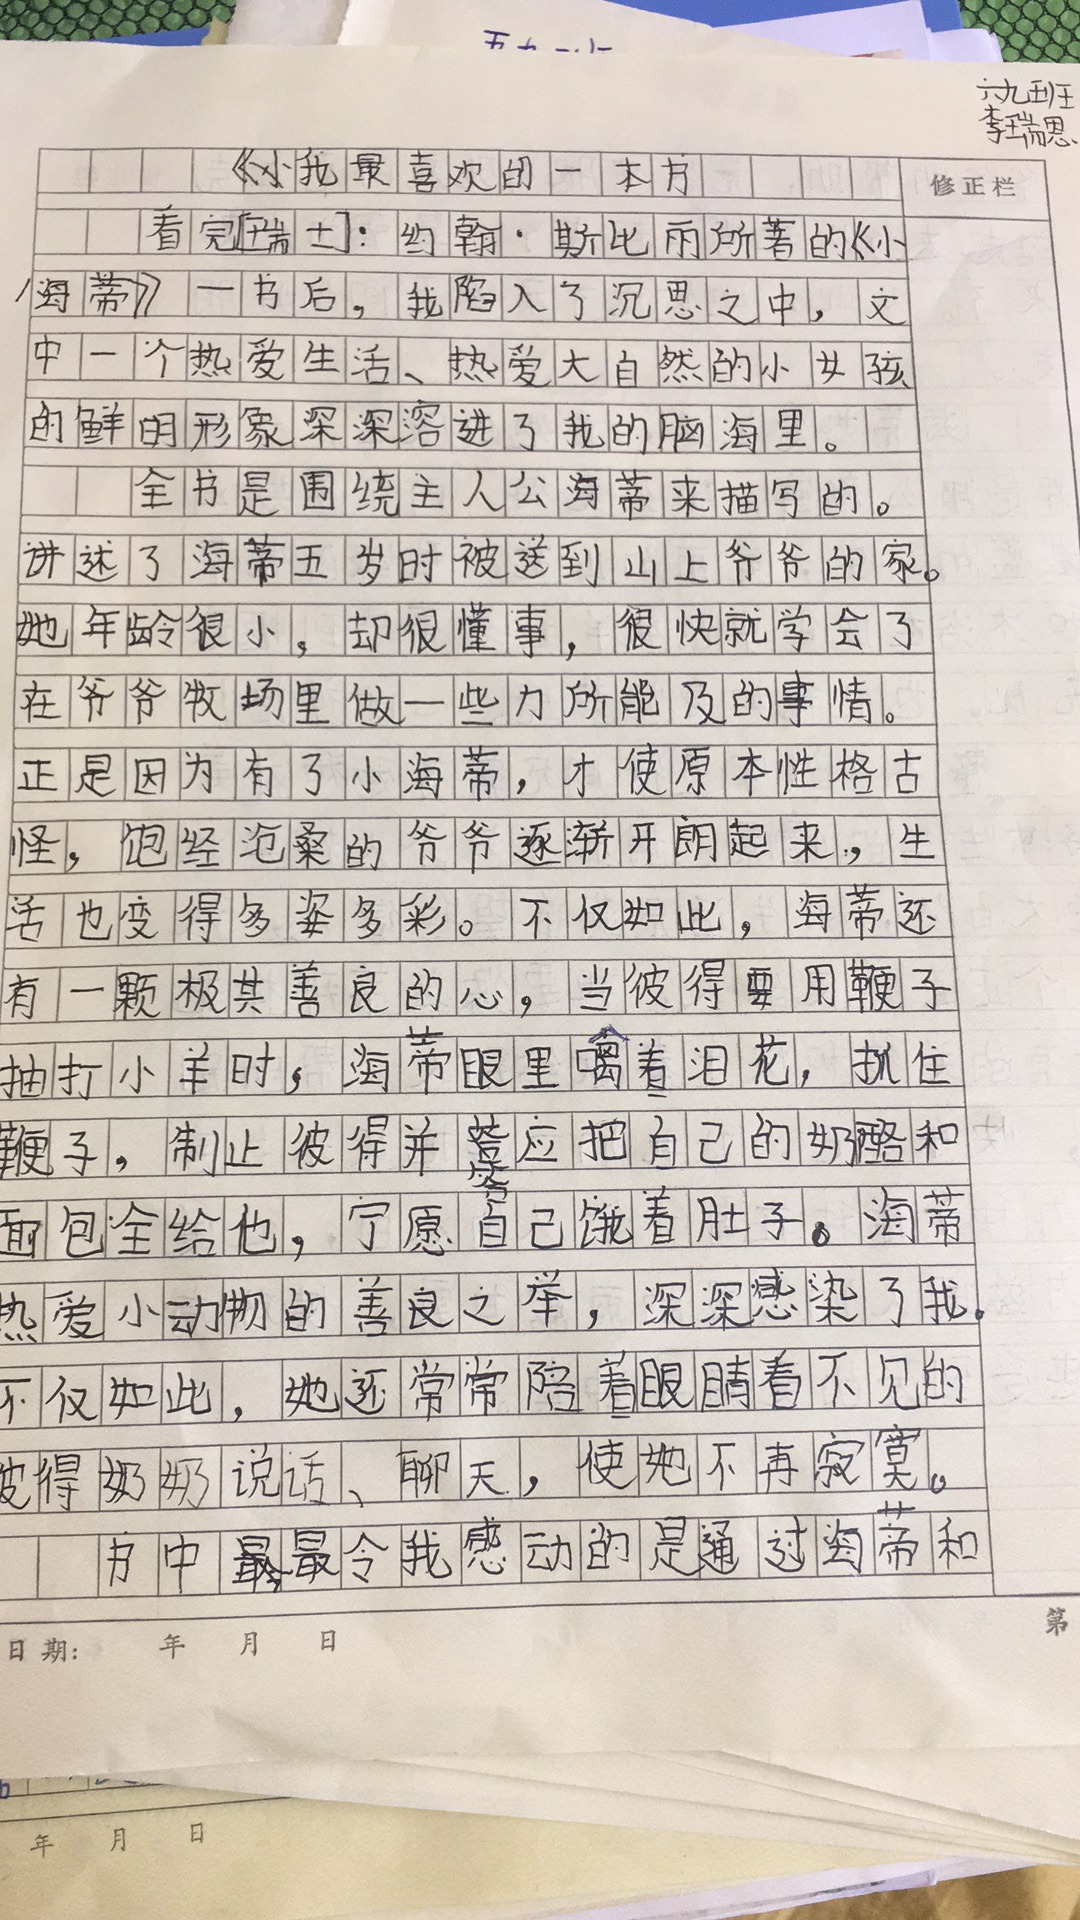 六九班
李瑞思
《小我最喜欢的一本书
修正栏
看完[瑞士]：约翰·斯比丽所著的《小
海蒂》一书后，我陷入了沉思之中，文
中一个热爱生活、热爱大自然的小女孩
的鲜明形象深深溶进了我的脑海里。
全书是围绕主人公海蒂来描写的。
讲述了海蒂五岁时被送到山上爷爷的家。
她年龄很小，却很懂事，很快就学会了
在爷爷牧场里做一些力所能及的事情。
正是因为有了小海蒂，才使原本性格古
怪，饱经沧桑的爷爷逐渐开朗起来，生
活也变得多姿多彩。不仅如此，海蒂还
有一颗极其善良的心，当彼得要用鞭子
抽打小羊时，海蒂眼里噙着泪花，抓住
鞭子，制止彼得并答应把自己的奶酪和
面包全给他，宁愿自己饿着肚子。海蒂
热爱小动物的善良之举，深深感染了我。
不仅如此，她还常常陪着眼睛看不见的
彼得奶奶说话、聊天，使她不再寂寞。
书中最令我感动的是通过海蒂和
日期： 年 月 日
第
年 月 日